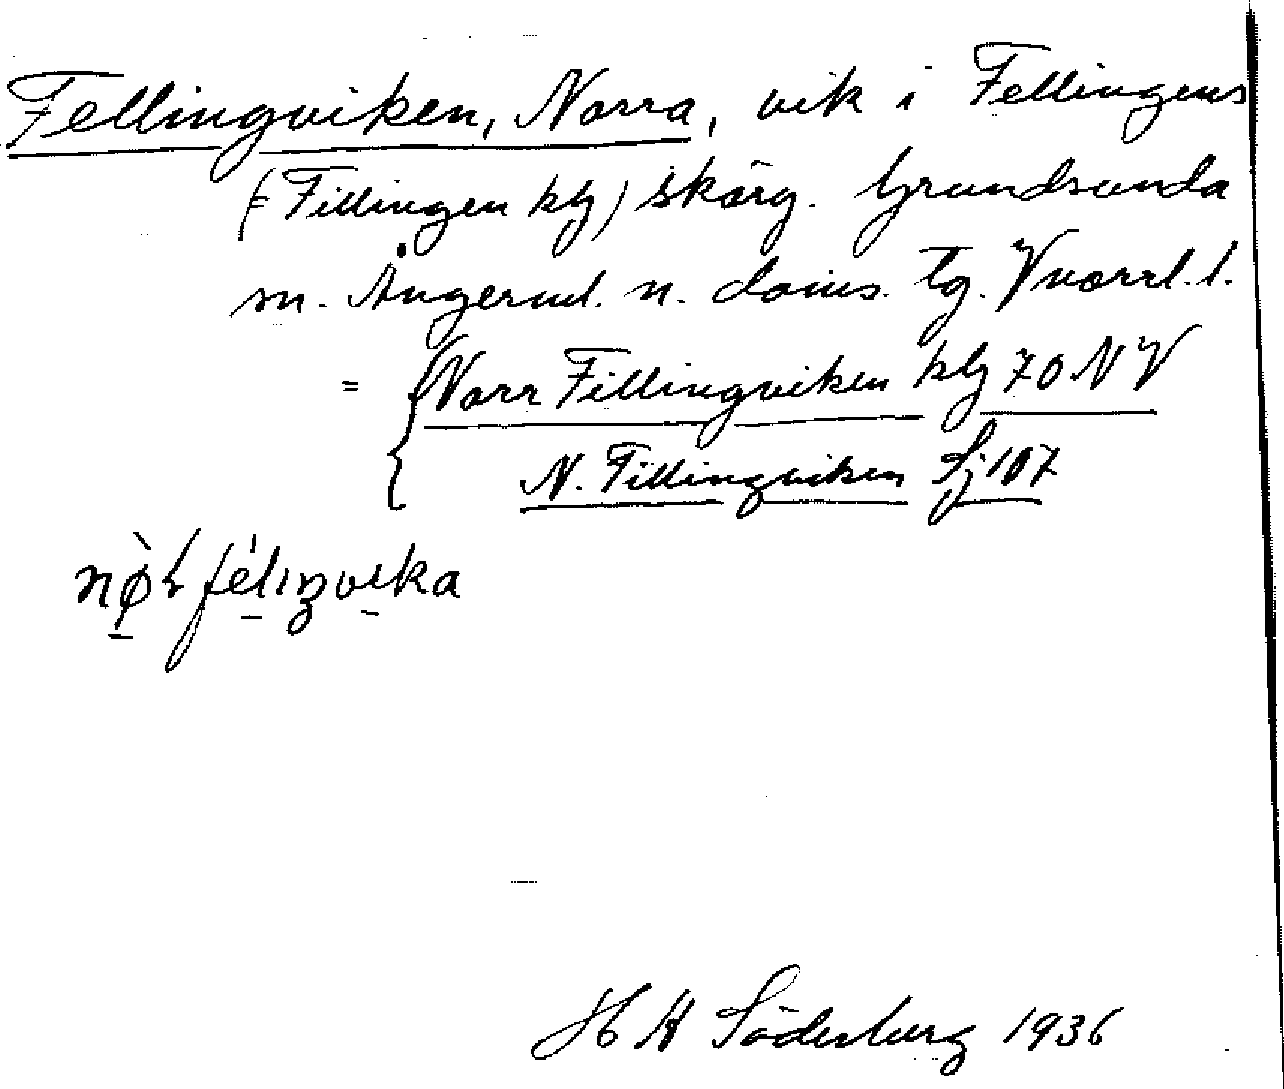 Fellingviken, Norra, vik i Fellingens
(= Fillingen kbg) skärg. Grundsunda
sn. Ångerml. n. doms. tg. Vnorrl. l.
= { Norr Fillingviken kbg 70 NV
N. Fillingviken Sj 107
nø̀ʟ félıŋvıka
H A Söderberg 1936